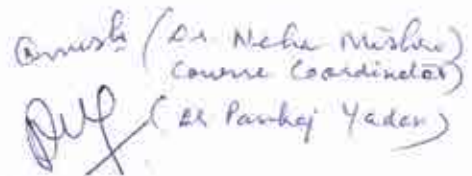 (Dr Neha Mishra)
Course Coordinator)
(Dr Pankaj Yadav)